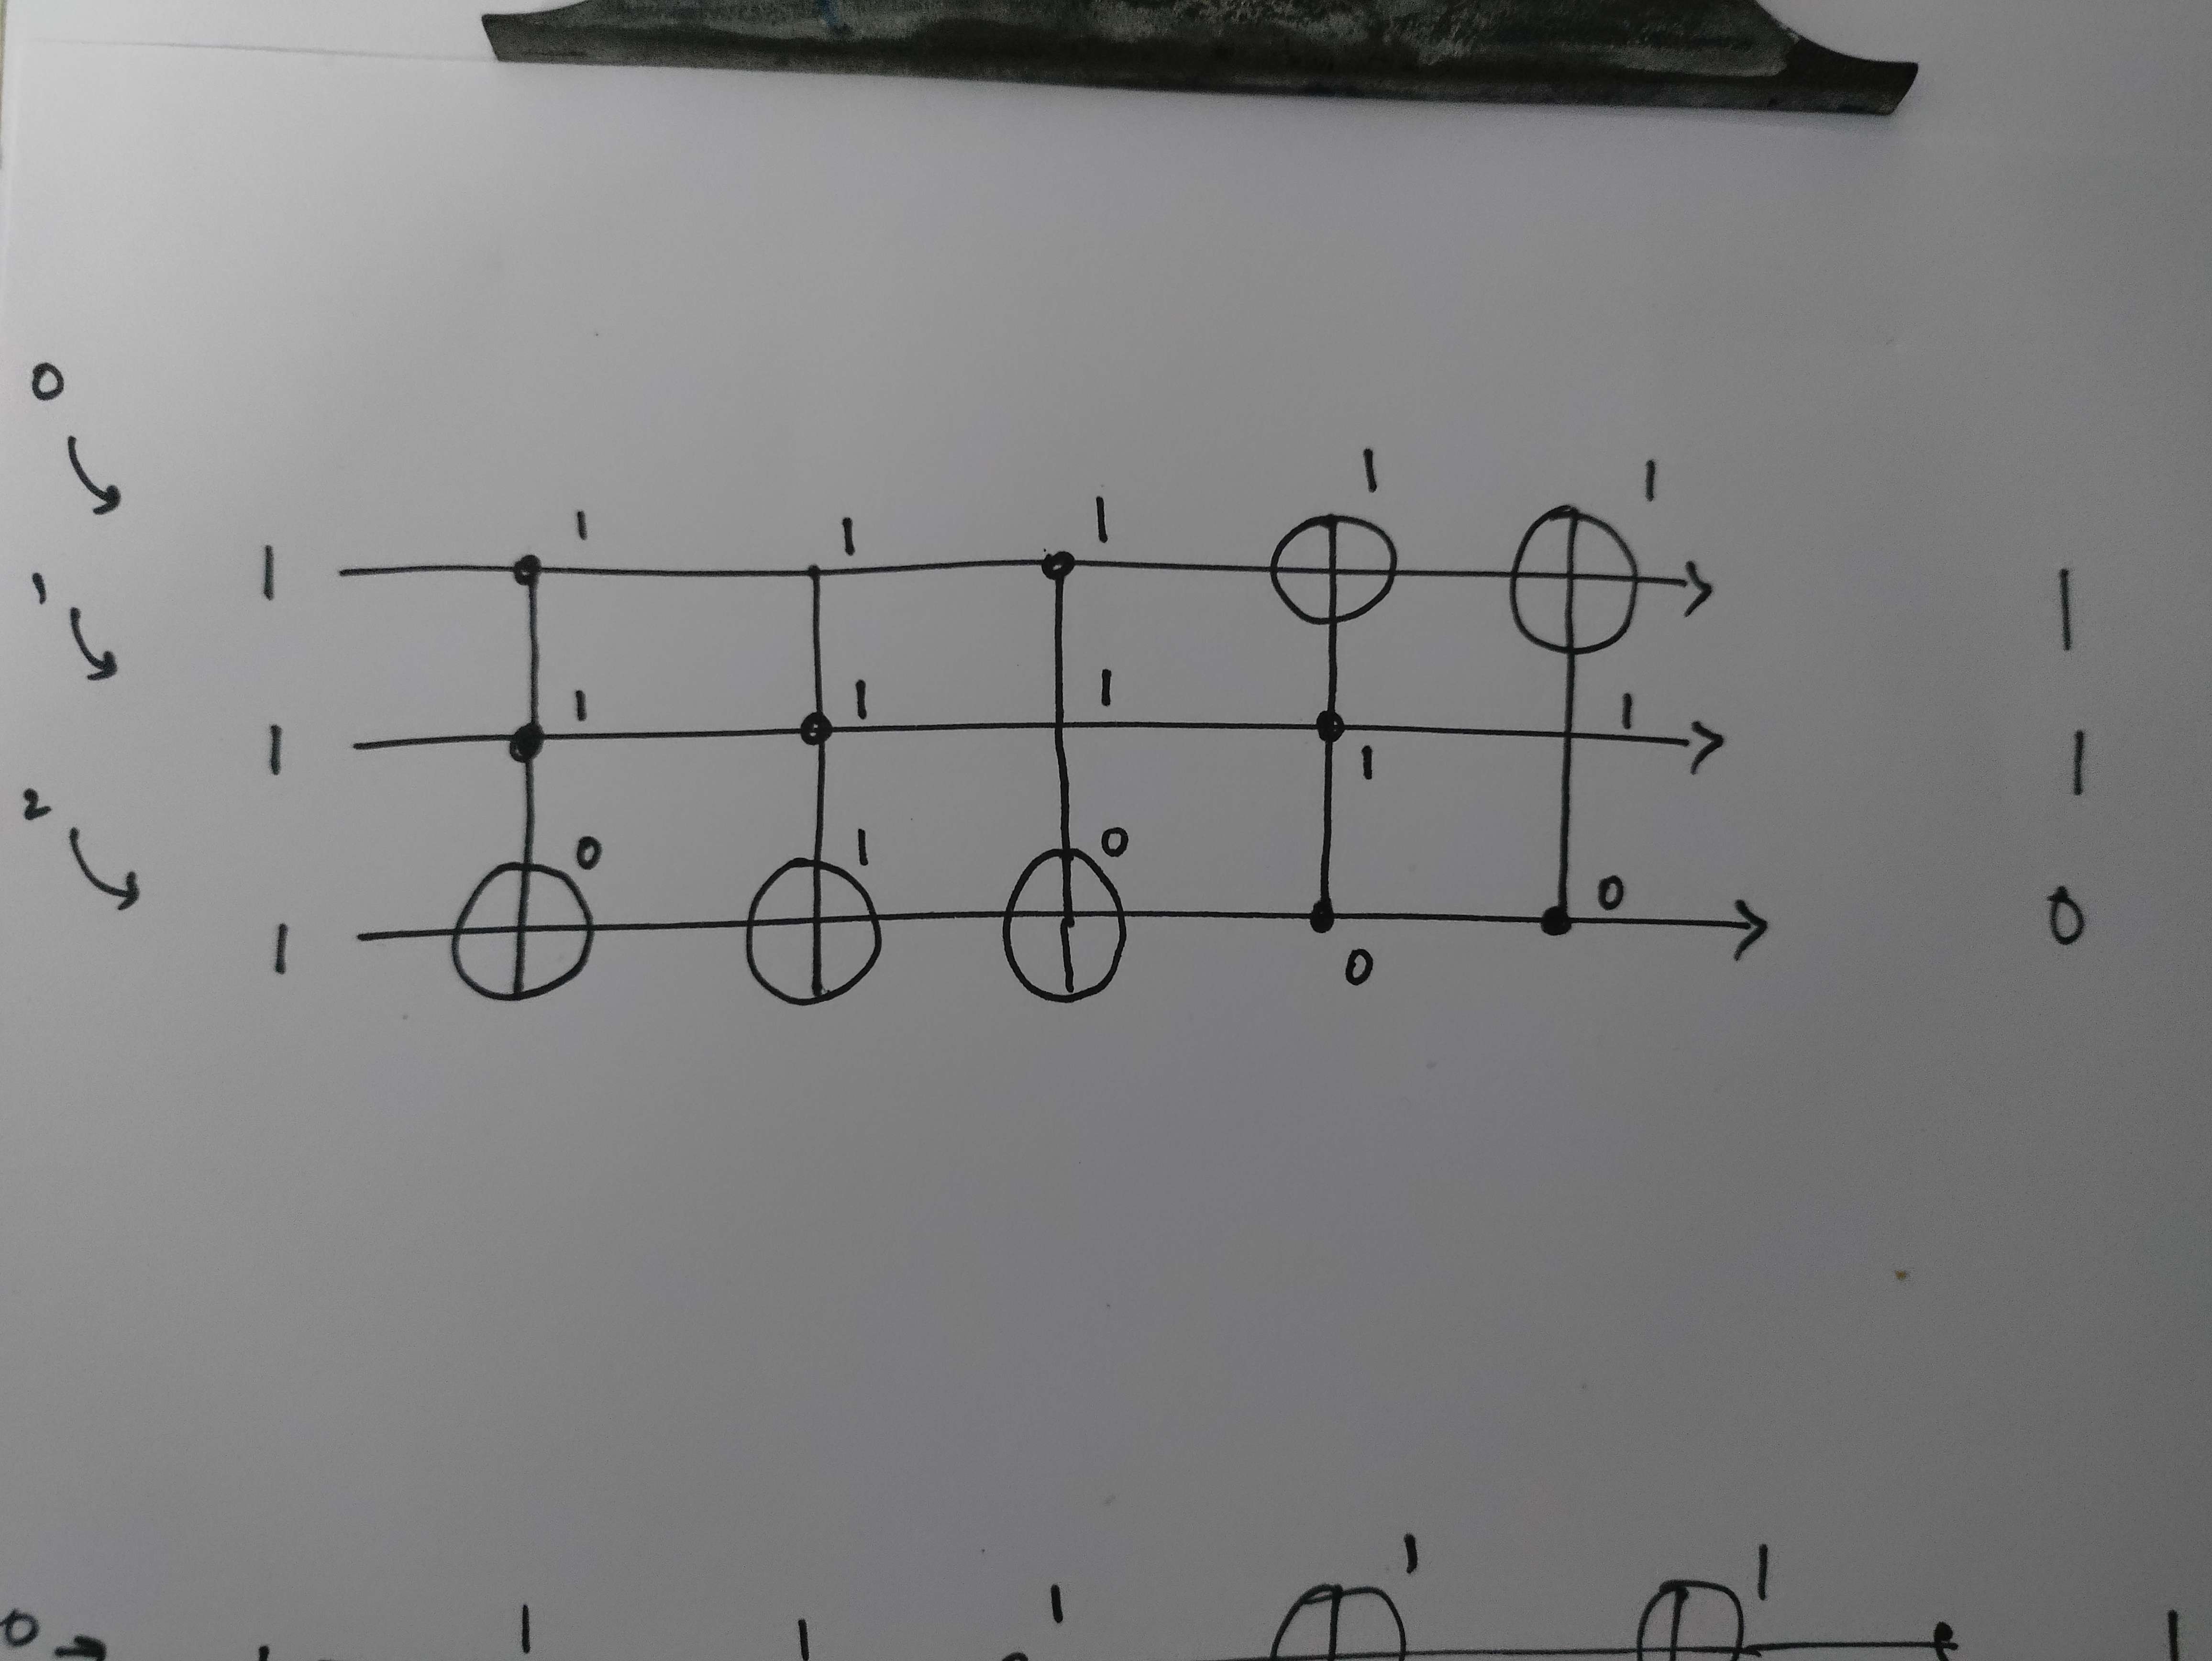 0
1 1
1 1 1 1 1 1
1 1 1 1 1
1 1 1
2 0 1 0 0
1 0 0
1 1
0 1 1 1 1